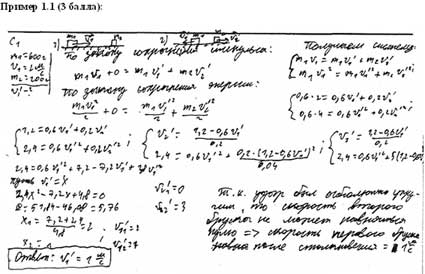 Пример 1.1 (3 балла):
C1
1) m1 v1 m2
2) m1 v1' m2 v2'
m1=600г
v1=2 м/с
m2=200г
v1'-?
По закону сохранения импульса:
m1v1+0=m1v1'+m2v2'
По закону сохранения энергии:
m1v1²/2+0=m1v1'²/2+m2v2'²/2
Получаем систему:
{m1v1=m1v1'+m2v2'
{m1v1²=m1v1'²+m2v2'²;
{0,6·2=0,6v1'+0,2v2'
{0,6·4=0,6v1'²+0,2v2'²;
{1,2=0,6v1'+0,2v2'
{2,4=0,6v1'²+0,2v2'²;
{v2'=(1,2-0,6v1')/0,2
{2,4=0,6v1'²+0,2·(1,2-0,6v1')²/0,04;
{v2'=(1,2-0,6v1')/0,2
2,4=0,6v1'²+7,2-7,2v1'+
Пусть v1'=x
2,4x²-7,2x+4,8=0
D=51,84-46,08=5,76
x1=(7,2+2,4)/4,8=2
v2'=0
v2'=3
Т.к. удар был абсолютно упругим, то скорость второго бруска не может равняться нулю => скорость первого бруска равна после столкновения = 1 м/с
Ответ: v1'=1 м/с